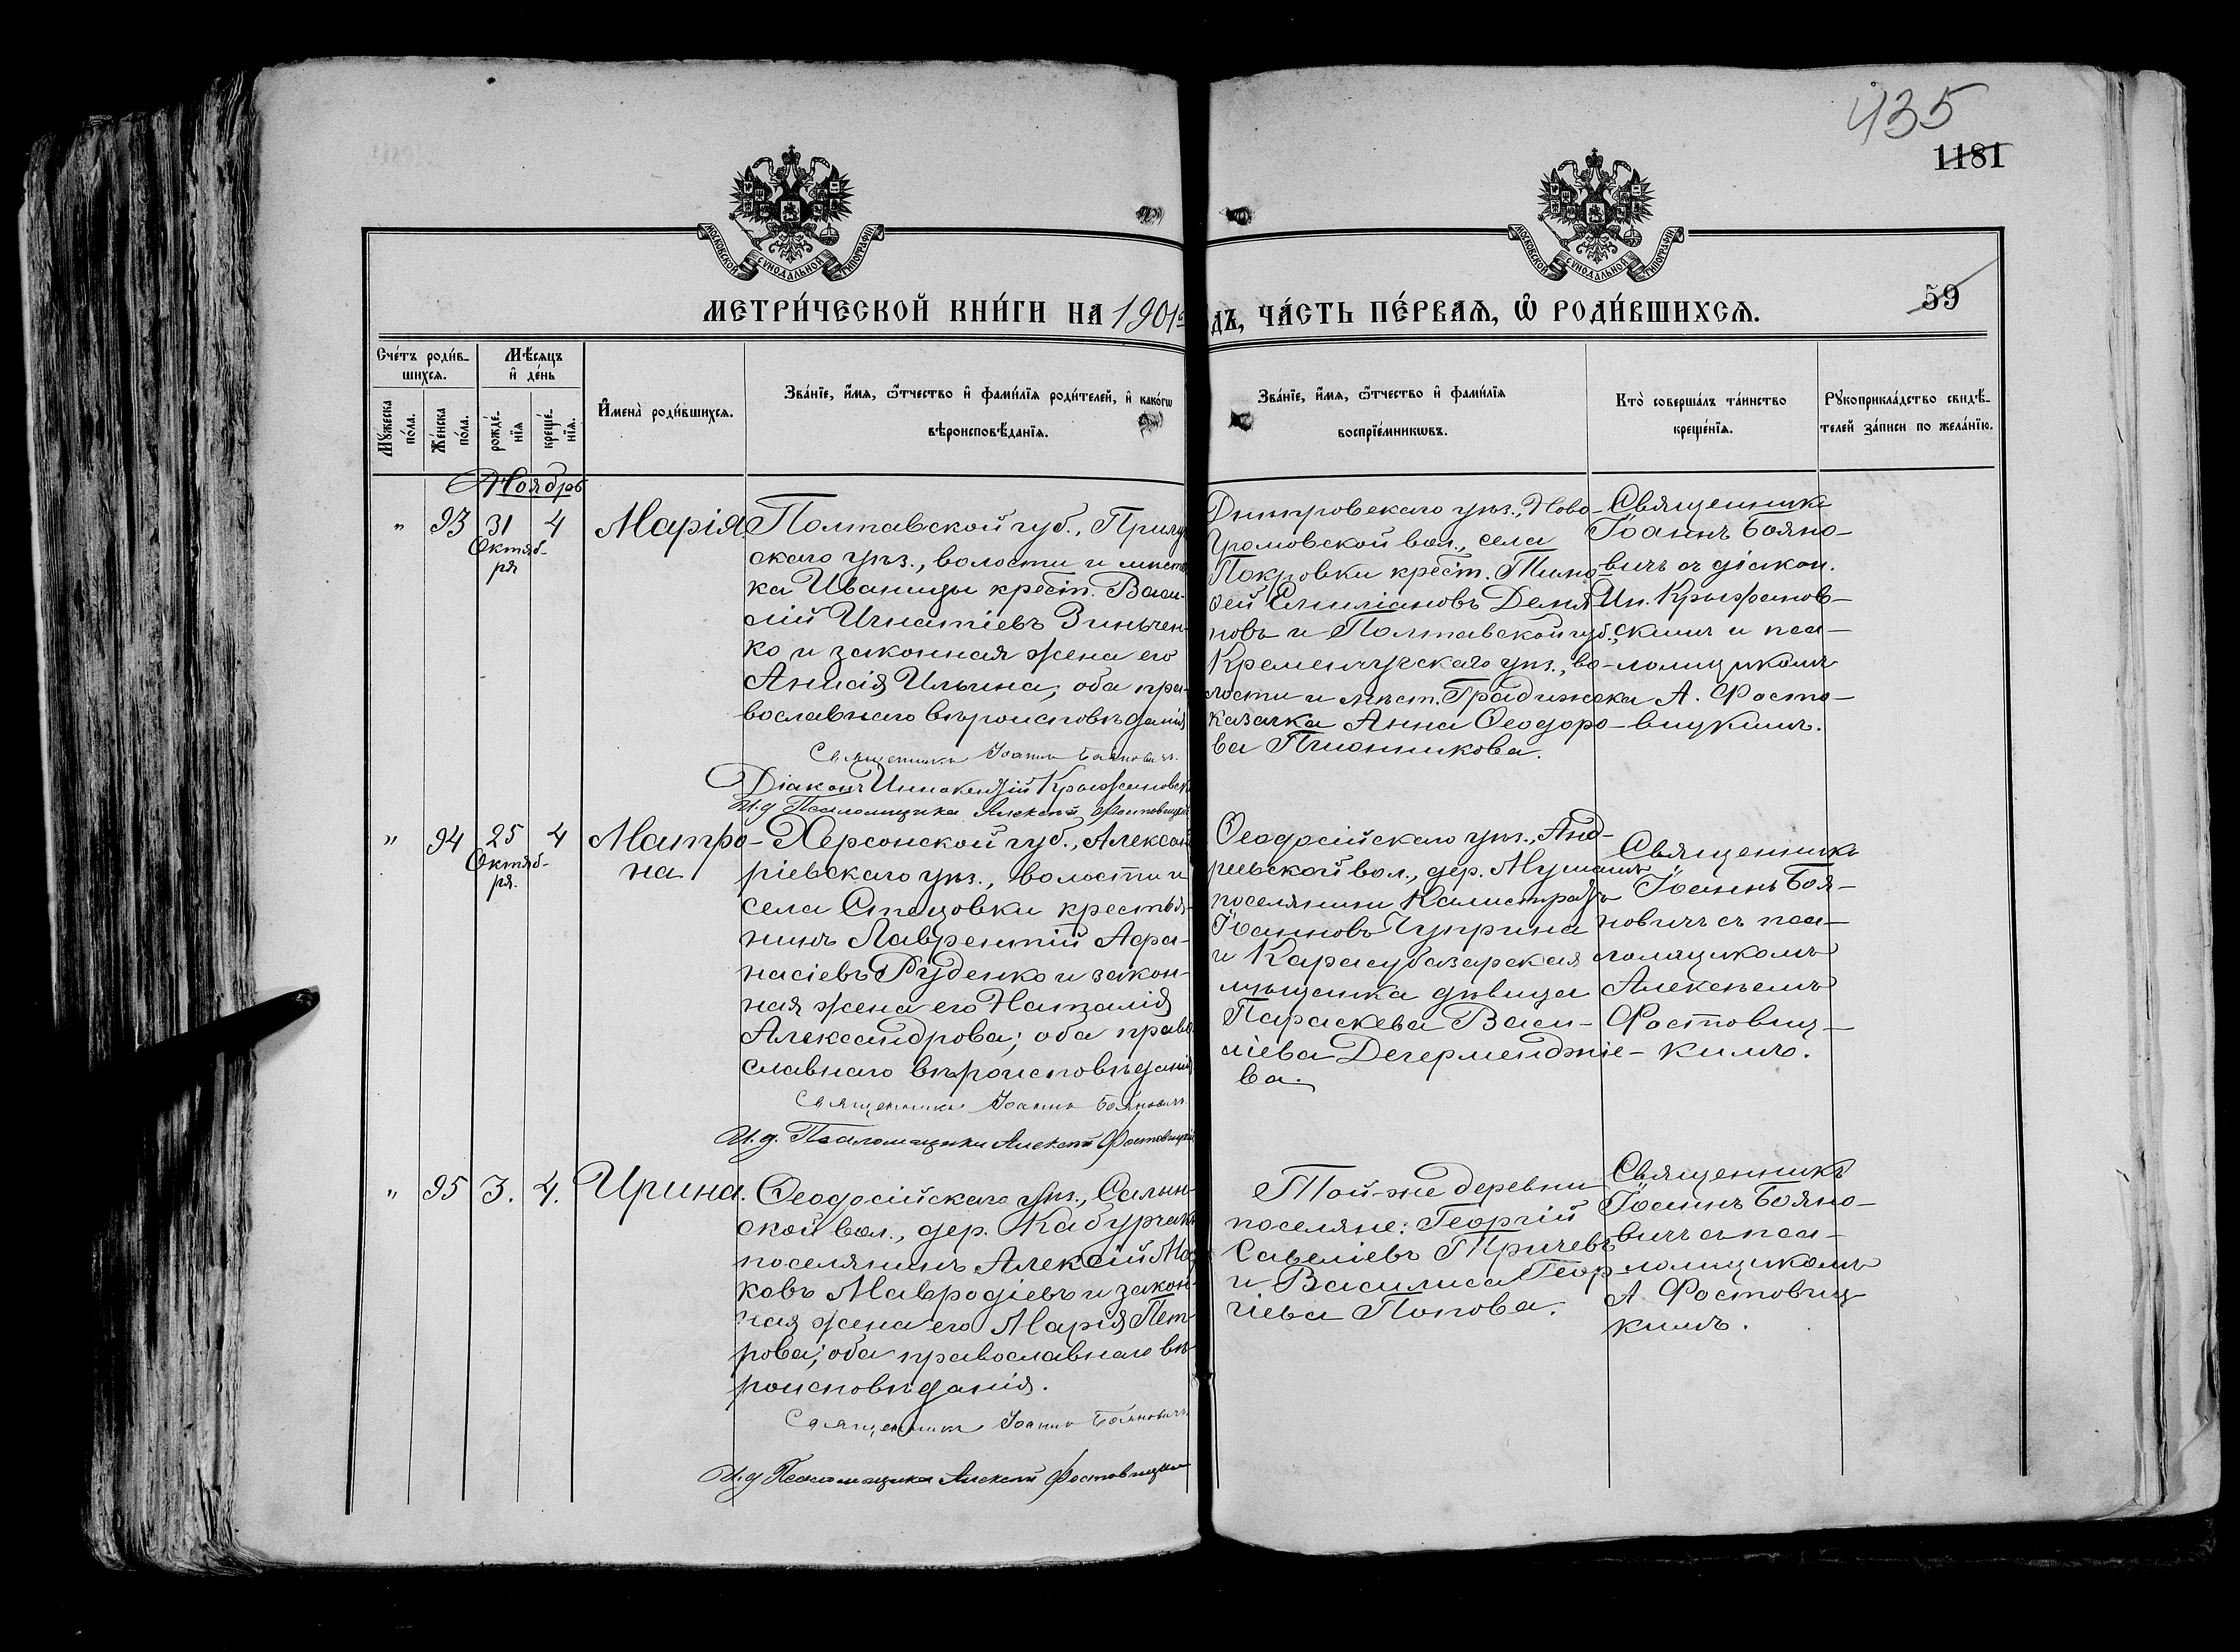 435
1181
59
МОСКОВСКОЙ СУНОДАЛЬНОЙ ТИПОГРАФІИ
МОСКОВСКОЙ СУНОДАЛЬНОЙ ТИПОГРАФІИ
МЕТРИ́ЧЕСКОЙ КНИ́ГИ НА 1901
ДЪ, ЧА́СТЬ ПЕ́РВАѦ, Ѽ РОДИ́ВШИХСѦ.
Сче́тъ роди́в-
шихсѧ.
Мѣ́сѧцъ
и҆ де́нь
Мꙋ́жеска
по́ла.
Же́нска
по́ла.
рожде́-
нїѧ
креще́-
нїѧ.
И҆мена̀ роди́вшихсѧ.
Зва́нїе, и҆́мѧ, ѻ҆́тчество и҆ фами́лїѧ роди́телей, и҆ како́гѡ
вѣроисповѣ́данїѧ.
Зва́нїе, и҆́мѧ, ѻ҆́тчество и҆ фами́лїѧ
воспрїе́мникѡвъ.
Кто̀ соверша́лъ та́инство
креще́нїѧ.
Рꙋкоприкла́дство свидѣ́-
телей за́писи по жела́нїю.
Ноябрь
" 93 31 4
Октяб-
ря
Марія
Полтавской губ., Прилу
скаго уѣз., волости и мѣстеч
ка Иваницы крест. Васи-
лій Игнатіевъ Зинчен-
ко и законная жена его
Анисія Ильина; оба пра-
вославнаго вѣроисповѣданія
Священникъ Іоаннъ Бояновичъ.
Діаконъ Иннокентій Крыжановск
И.д Псаломщика Алексѣй Фостовицкій
Днѣпровскаго уѣз., Ново-
Троицкой вол., села
Покровки крест. Тимо-
ѳей Емиліановъ Демя
новъ и Полтавской губ.,
Кременчугскаго уѣз., во-
лости и мѣст. Градижска
казачка Анна Ѳеодоро-
ва Пшонникова.
Священникъ
Іоаннъ Бояно-
вичъ съ діакон.
Ин. Крыжанов-
скимъ и пса-
ломщикомъ
А. Фосто-
вицкимъ.
" 94 25 4
Октяб-
ря.
Матро-
на
Херсонской губ., Алексан
ріевскаго уѣз., волости и
села Стецовки крестья-
нинъ Лаврентій Аѳа-
насіевъ Руденко и закон-
ная жена его Наталія
Александрова; оба право
славнаго вѣроисповѣданія
Священникъ Іоаннъ Бояновичъ.
И.д. Псаломщика Алексѣй Фостовицкій
Ѳеодосійскаго уѣз., Анд-
реевской вол., дер.
поселянинъ Калистратъ
Іоанновъ Чуприна
и Карасубазарская
мѣщанка дѣвица
Параскева Васи-
ліева Дегерменджіе-
ва.
Священникъ
Іоаннъ Боя-
новичъ съ пса-
ломщикомъ
Алексѣемъ
Фостовиц-
кимъ.
" 95 3. 4.
Ирина.
Ѳеодосійскаго уѣз., Салын-
ской вол., дер. Кабурчакъ
поселянинъ Алексій
ковъ Мавродіевъ и закон-
ная жена его Марія Пет-
рова; оба православнаго вѣ-
роисповѣданія.
Священникъ Іоаннъ Бояновичъ.
И.д Псаломщика Алексѣй Фостовицкій
Той-же деревни
поселяне: Георгій
Савеліевъ Кричевъ
и Василиса Геор-
гіева Попова.
Священникъ
Іоаннъ Бояно-
вичъ съ пса-
ломщикомъ
А Фостовиц
кимъ.